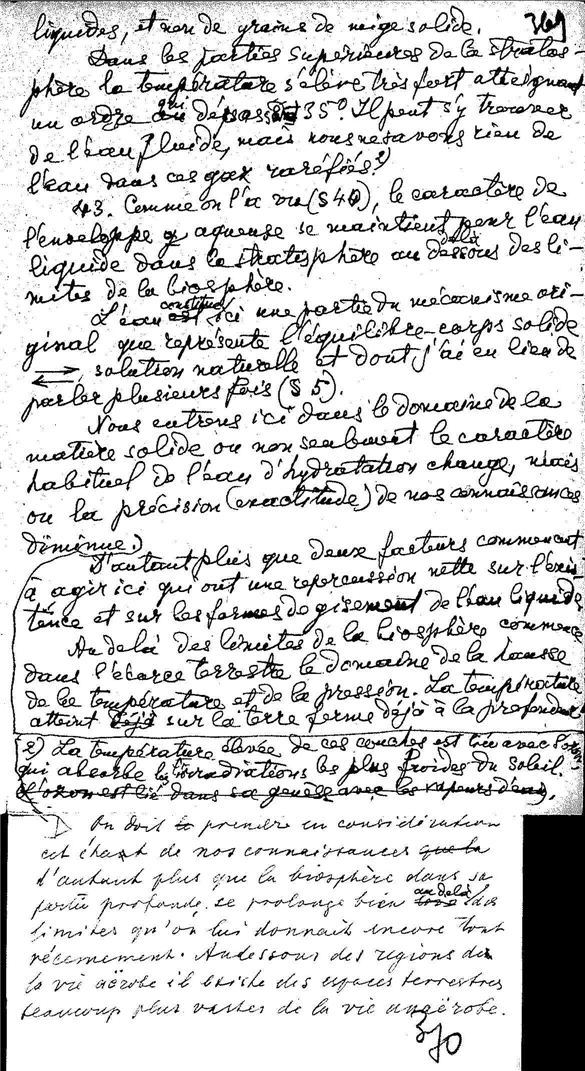 369
liquides, et non de grains de neige solide.
Dans les parties supérieures de la stratos-
phère la température s'élève très fort atteignant
un ordre qui dépasse 35°. Il peut s'y trouver
de l'eau fluide, mais nous ne savons rien de
l'eau dans ces gaz raréfiés.²)
43. Comme on l'a vu (§ 40), le caractère de
l'enveloppe aqueuse se maintient pour l'eau
liquide dans la stratisphère au delà des li-
mites de la biosphère.
L'eau constitue ici une partie du mécanisme ori-
ginal que représente l'équilibre-corps solide
⇄ solution naturelle et dont j'ai eu lieu de
parler plusieurs fois (§ 5).
Nous entrons ici dans le domaine de la
matière solide ou non seulement le caractère
habituel de l'eau d'hydratation change, mais
ou la précision (exactitude) de nos connaissances
diminue.)
D'autant plus que deux facteurs commencent
à agir ici qui ont une repercussion nette sur l'exis
tence et sur les formes de gisement de l'eau liquide
Au delà des limites de la biosphère commence
dans l'écorce terrestre le domaine de la hausse
de la température et de la pression. La température
atteint sur la terre ferme déjà à la profondeur
2) La température élevée de ces couches est liée avec l'ozon
qui absorbe les irradiations les plus froides du soleil.
L'ozon est lié dans sa genèse avec les vapeurs d'eau.
On doit prendre en considération
cet état de nos connaissances
d'autant plus que la biosphère dans sa
partie profonde, se prolonge bien au delà des
limites qu'on lui donnait encore tout
récemment. Au dessous des regions de
la vie aérobe il existe des espaces terrestres
beaucoup plus vastes de la vie anaérobe.
370